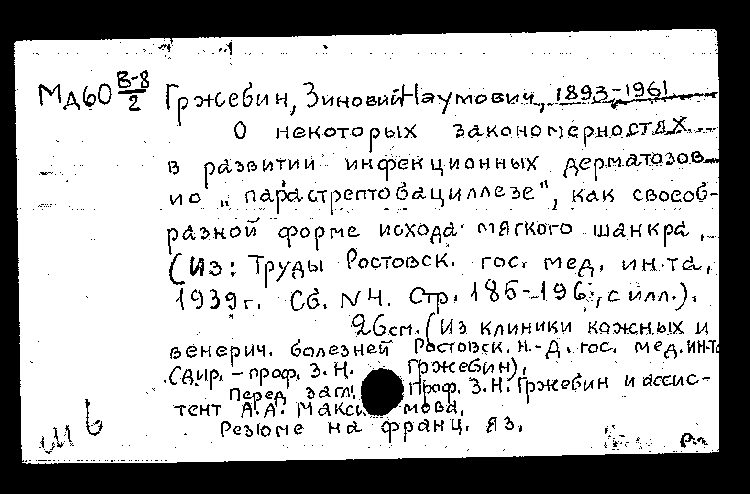 Мд60 В-8/2 Гржебин, Зиновий Наумович, 1893-1961
О некоторых закономерностях
в развитии инфекционных дерматозов
и о „парастрептобациллезе", как своеоб-
разной форме исхода мягкого шанкра.
(Из: Труды Ростовск. гос. мед. ин.та,
1939г. Сб. N4. Стр. 186-196, с илл.).
26см. (Из клиники кожных и
венерич. болезней Ростовск. н.-д. гос. мед. ин-та
(Дир. - проф. З. Н. Гржебин).
Перед загл. проф. З. Н. Гржебин и ассис-
тент А. А. Макси мова.
Резюме на франц. яз.